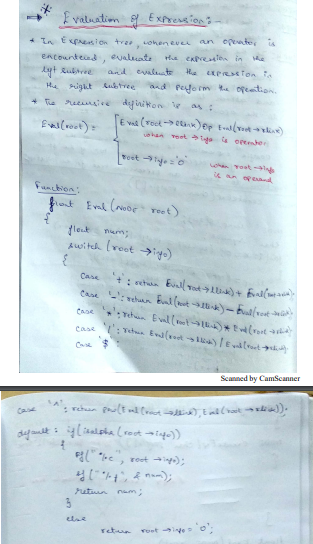 * Evaluation of Expression :-
* In Expression tree, whenever an operator is
encountered, evaluate the expression in the
left subtree and evaluate the expression in
the right subtree and perform the operation.
* The recursive definition is as :
Eval(root) = Eval(root→llink) op Eval(root→rlink)
when root→info is operator
root→info - '0' when root→info
is an operand
Function:
float Eval (NODE root)
{
float num;
switch (root→info)
{
case '+': return Eval(root→llink) + Eval(root→rlink);
case '-': return Eval(root→llink) - Eval(root→rlink);
case '*': return Eval(root→llink) * Eval(root→rlink);
case '/': return Eval(root→llink) / Eval(root→rlink);
case '$':
Scanned by CamScanner
case '^': return pow(Eval(root→llink), Eval(root→rlink));
default : if(isalpha(root→info))
{
pf("%c", root→info);
sf("%f", &num);
return num;
}
else
return root→info - '0';